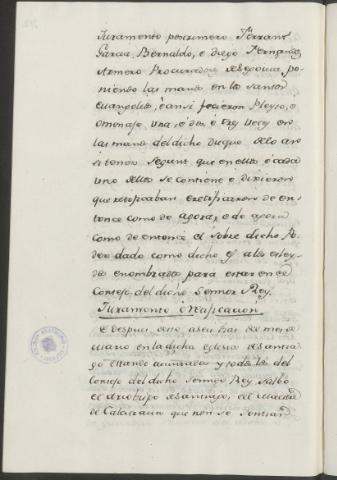 Juramento postrimero Ferrant
Garcia, Bernaldo, e Diego Fernandez
Armero Procuradores de Segovia, po-
niendo las manos en los Santos
Evangelios, e ansi ficieron Pleyto, e
omenaje una, e dos, e tres veces en
las manos del dicho Duque de lo an-
si tener segunt que en ellos e cada
uno dellos se contiene e dixieron
que retificaban e retificaron de en-
tonce como de agora, e de agora
como de entonce el sobre dicho Po-
der dado como dicho es a los esley-
dos e nombrados para estar en el
Consejo del dicho Sennor Rey.
Juramento é ratificacion
E despues desto a seis dias del mes de
en la dicha eglesia de Santia-
go estando ayuntados y todos los del
Consejo del dicho Sennor Rey salbo
el Arzobispo de Santiago, e el Maestre
de Calatraua que non se